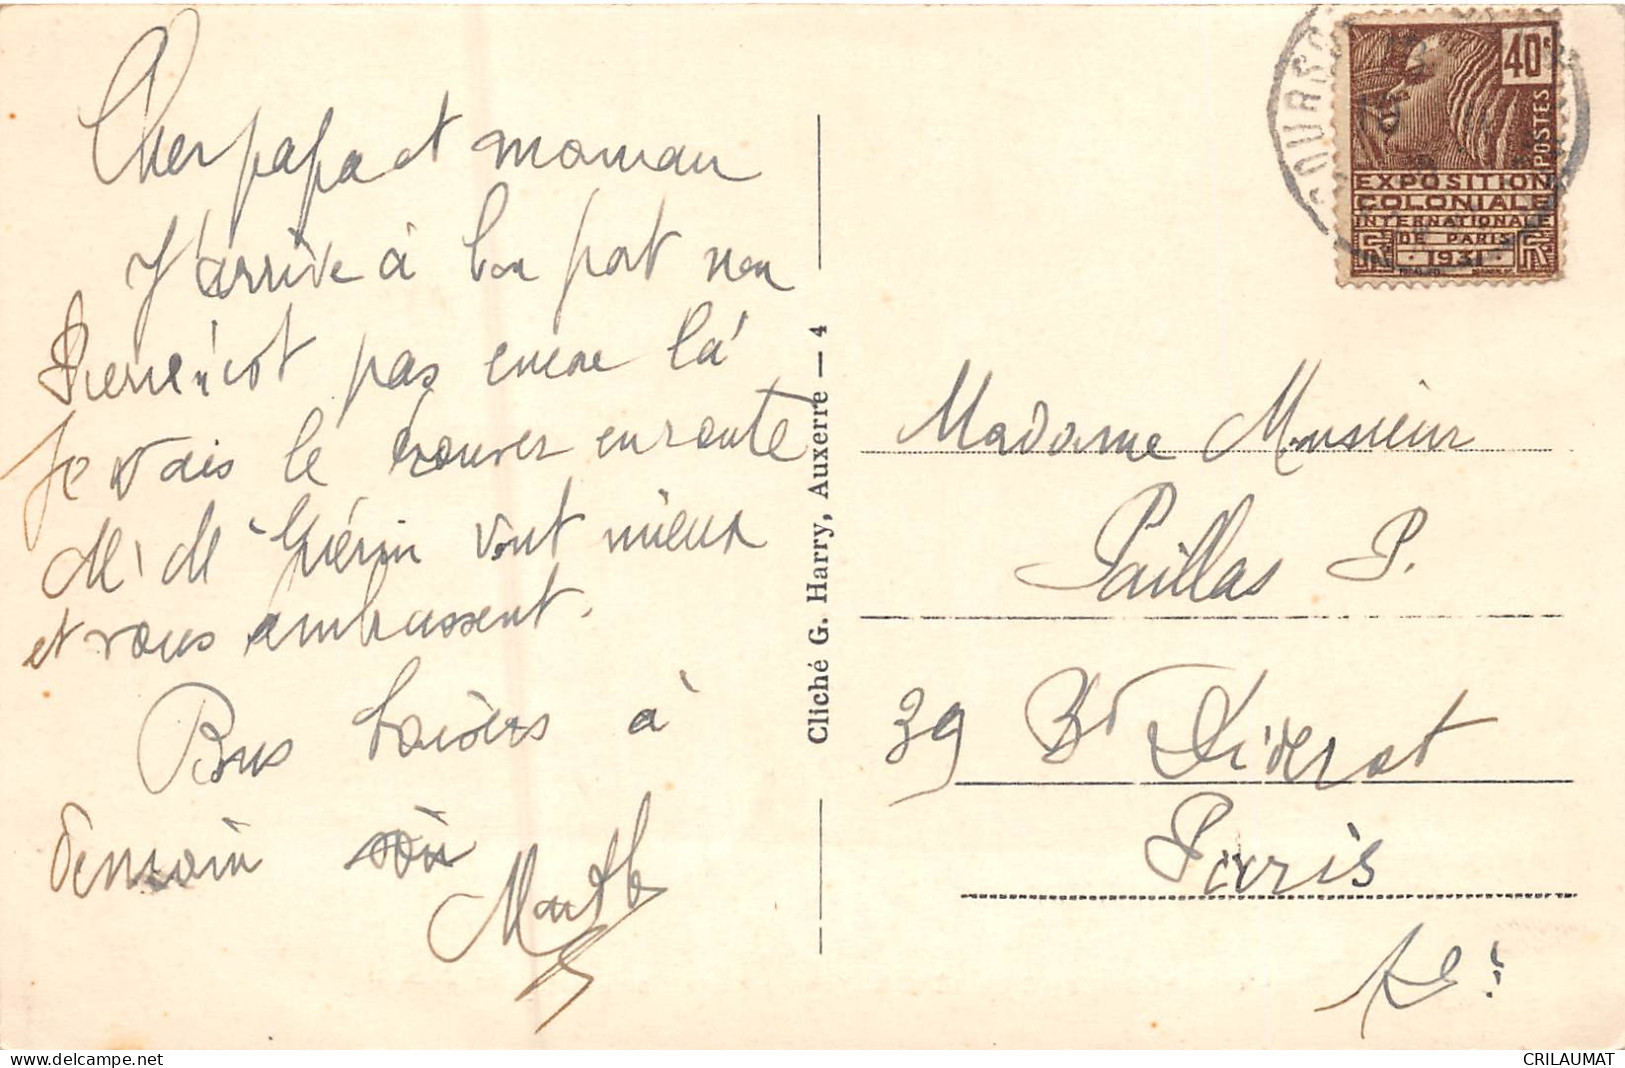 Cher papa et maman
J'arrive à bon port mon
pas encore là
Je vais le trouver en route
M. M Guérin vont mieux
et vous embrassent.
Bons baisers à
demain
Marthe
Cliché G. Harry, Auxerre — 4
40c
POSTES
EXPOSITION
COLONIALE
INTERNATIONALE
DE PARIS
RF · 1931 · RF
Madame Monsieur
Paillas P.
39 Bd Diderot
Paris
CRILAUMAT
delcampe.net